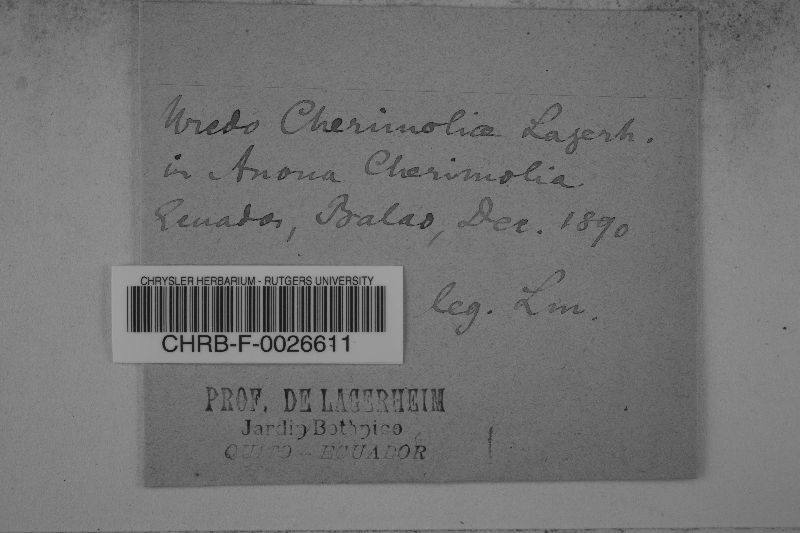 Uredo Cherimoliæ Lagerh.
in Anona Cherimolia
Ecuador, Balao, Dec. 1890
leg. Lm.
CHRYSLER HERBARIUM - RUTGERS UNIVERSITY
CHRB-F-0026611
PROF. DE LAGERHEIM
Jardin Botánico
QUITO - ECUADOR